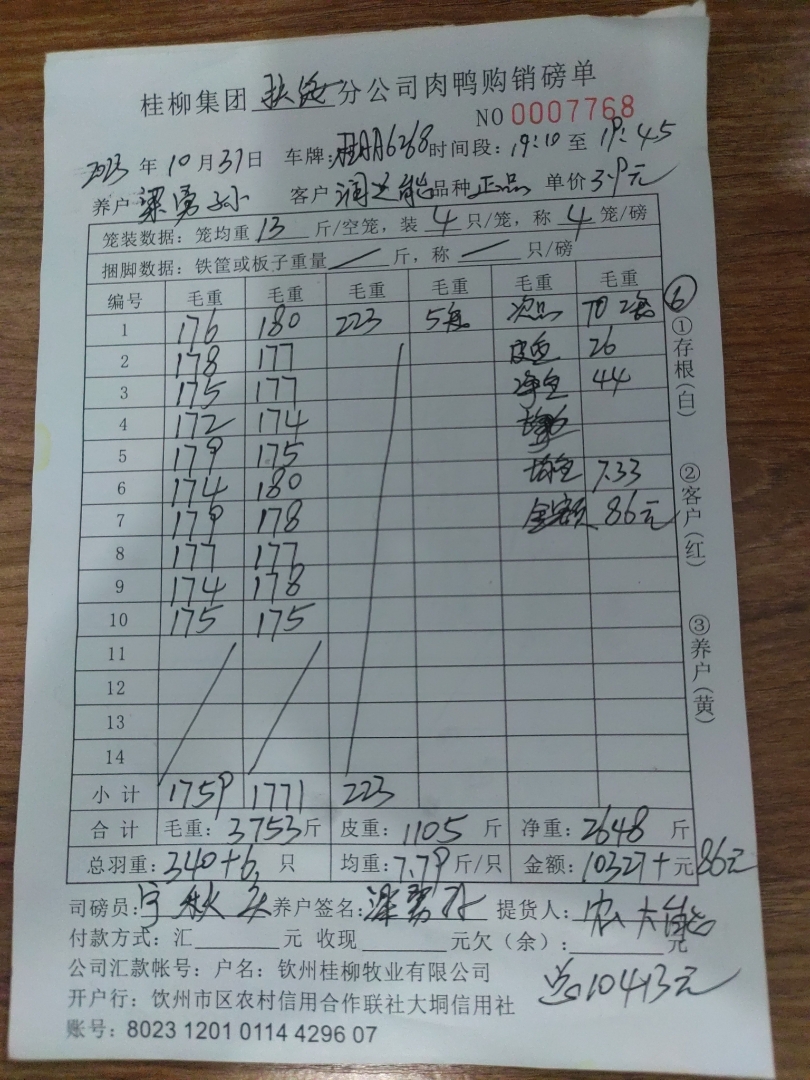 桂柳集团 扶绥 分公司肉鸭购销磅单
NO 0007768
2023 年 10 月 31 日 车牌: 桂AA6268 时间段: 19:10 至 19:45
养户 梁勇孙 客户 润达能 品种 正品 单价 3.9元
笼装数据: 笼均重 13 斤/空笼, 装 4 只/笼, 称 4 笼/磅
捆脚数据: 铁筐或板子重量 / 斤, 称 / 只/磅
编号 毛重 毛重 毛重 毛重 毛重 毛重
1 176 180 223 5笼 次品 70 2笼 ⑥
2 178 177 皮重 26
3 175 177 净重 44
4 172 174
5 179 175 均重 7.33
6 174 180 金额 86元
7 179 178
8 177 177
9 174 178
10 175 175
11
12
13
14
小计 1759 1771 223
合计 毛重: 3753 斤 皮重: 1105 斤 净重: 2648 斤
总羽重: 340+6 只 均重: 7.79 斤/只 金额: 10327+ 元 86元
司磅员: 养户签名: 梁勇孙 提货人:
付款方式: 汇 元 收现 元欠(余): 元
公司汇款帐号: 户名: 钦州桂柳牧业有限公司
总10413元
开户行: 钦州市区农村信用合作联社大垌信用社
账号: 8023 1201 0114 4296 07
①存根(白)
②客户(红)
③养户(黄)